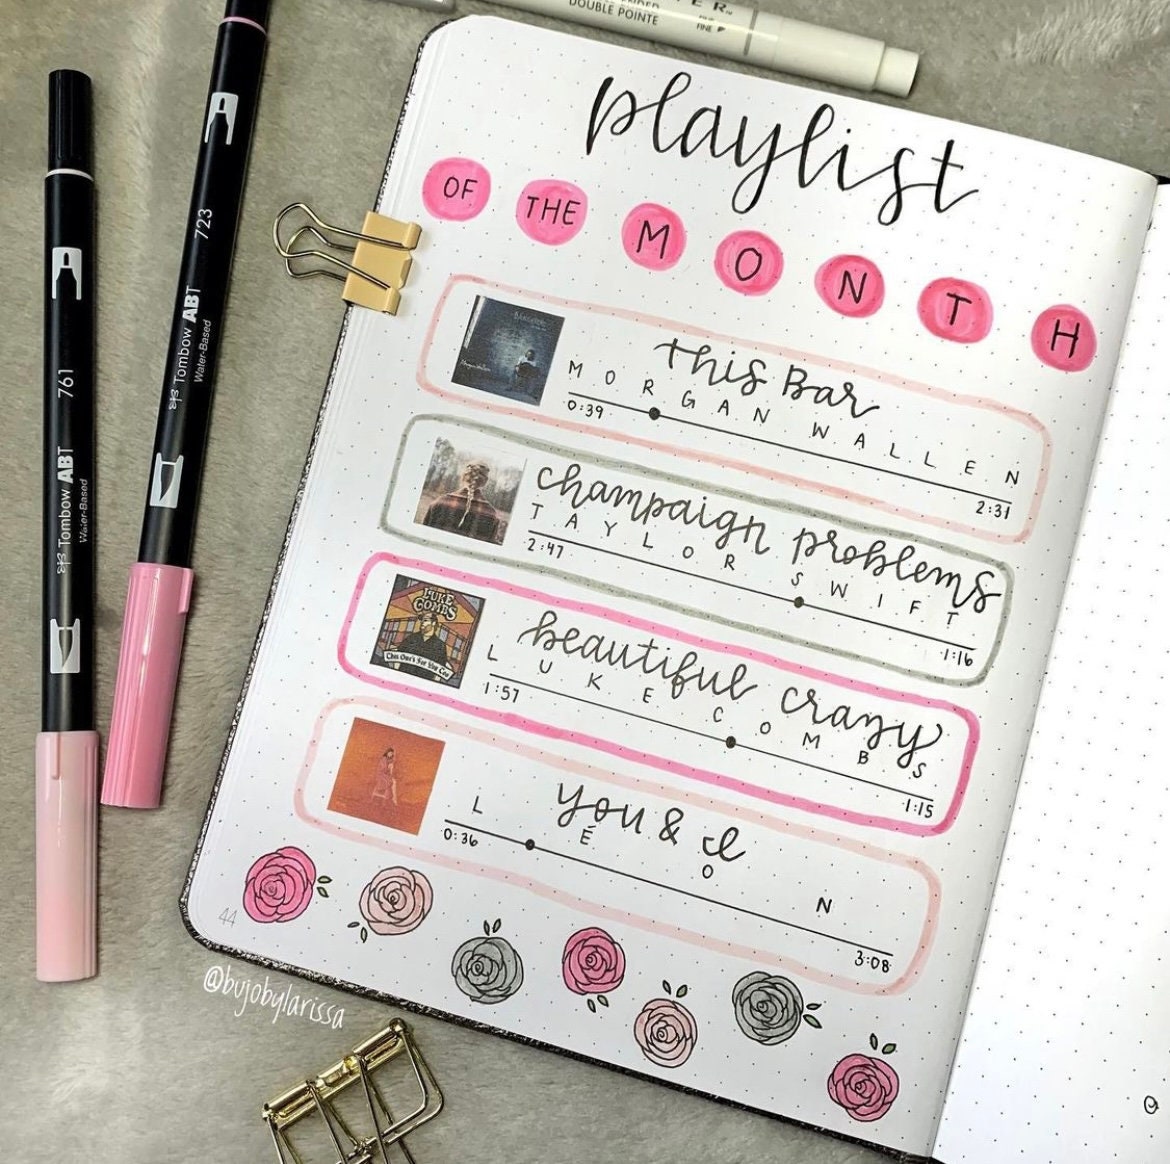 DOUBLE POINTE
playlist
OF THE MONTH
this Bar
MORGAN WALLEN
0:39
2:31
champaign problems
TAYLOR SWIFT
2:47
-1:16
LUKE COMBS
This One's For You Too
beautiful crazy
LUKE COMBS
1:57
-1:15
you & I
LÉON
0:36
3:08
44
@bujobylarissa
761
Tombow ABT
Water-Based
723
Tombow ABT
Water-Based